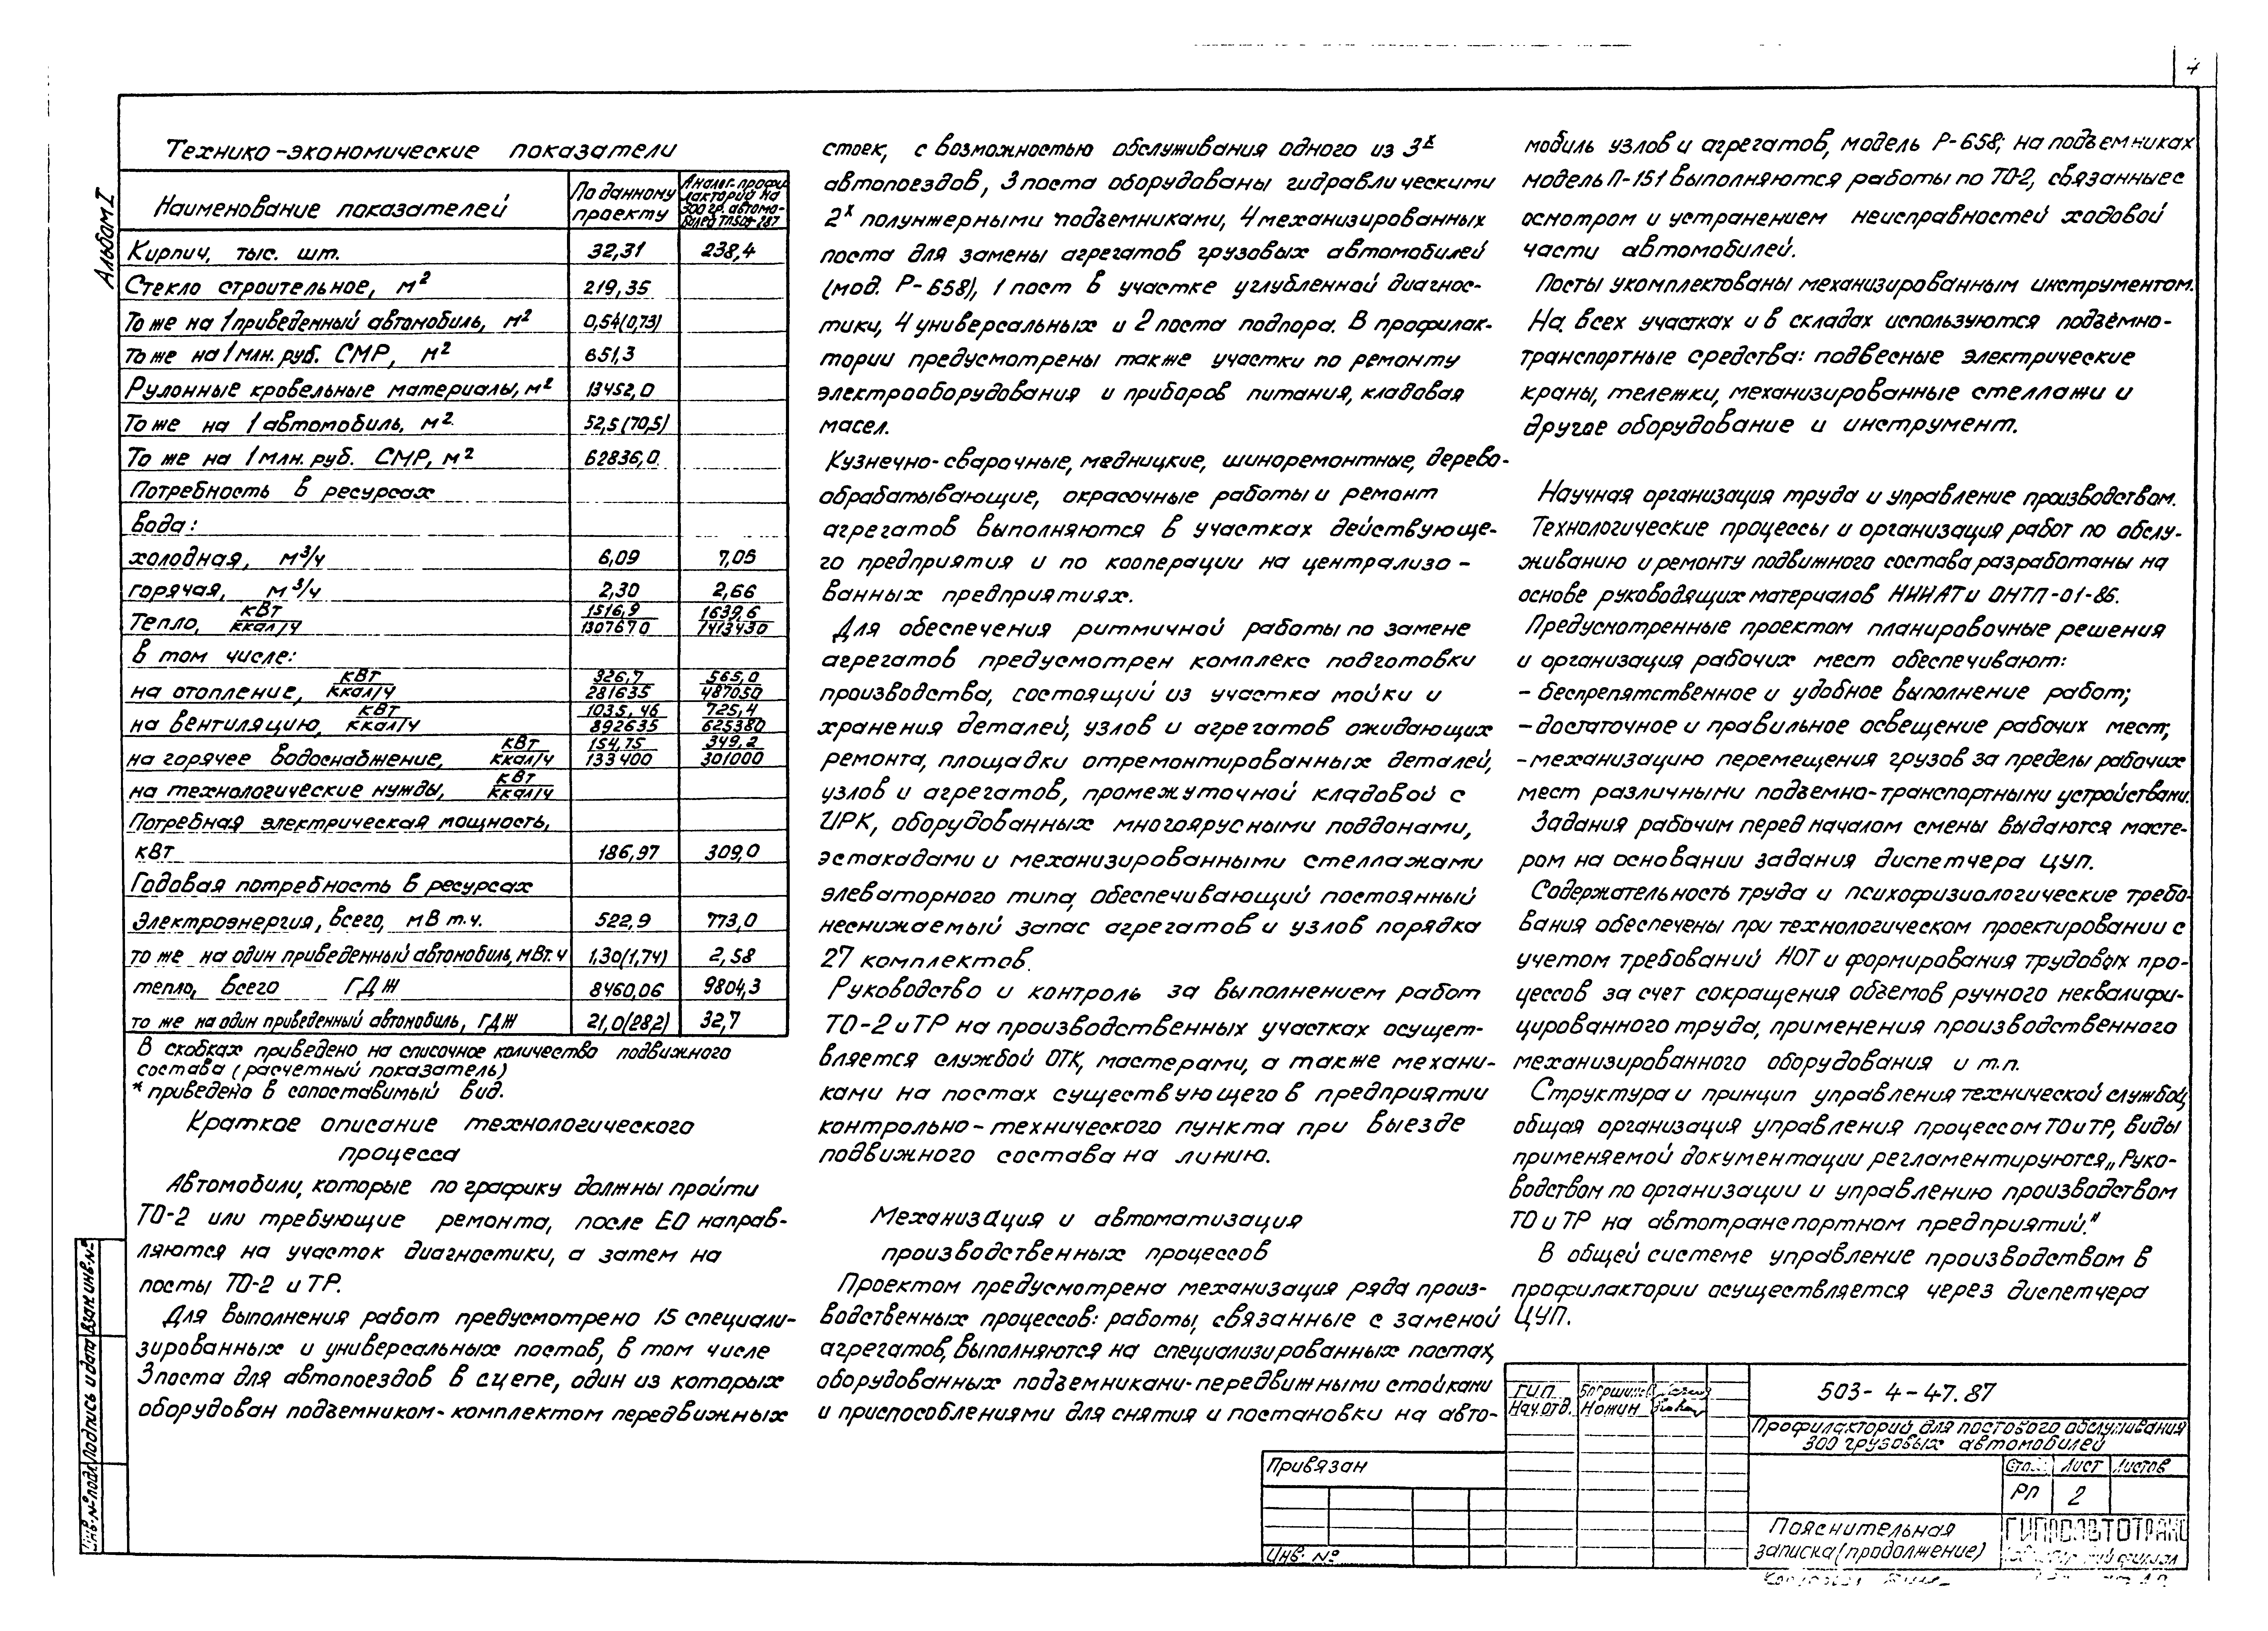 4
Альбом I
Технико-экономические показатели
Наименование показателей | По данному проекту | Аналог-профилакторий на 300 гр. автомобилей
Кирпич, тыс. шт. | 32,31 | 238,4
Стекло строительное, м² | 219,35
То же на 1 приведенный автомобиль, м² | 0,54(0,73)
То же на 1 млн. руб. СМР, м² | 651,3
Рулонные кровельные материалы, м² | 13452,0
То же на 1 автомобиль, м² | 52,5(70,5)
То же на 1 млн. руб. СМР, м² | 62836,0
Потребность в ресурсах
вода:
холодная, м³/ч | 6,09 | 7,05
горячая, м³/ч | 2,30 | 2,66
Тепло, кВт/ккал/ч | 1516,9/1307670 | 1639,6/1413430
в том числе:
на отопление, кВт/ккал/ч | 326,7/281635 | 565,0/487050
на вентиляцию, кВт/ккал/ч | 1035,46/892635 | 725,4/625380
на горячее водоснабжение, кВт/ккал/ч | 154,75/133400 | 349,2/301000
на технологические нужды, кВт/ккал/ч
Потребная электрическая мощность,
кВт | 186,97 | 309,0
Годовая потребность в ресурсах
Электроэнергия, всего, мВт.ч. | 522,9 | 773,0
то же на один приведенный автомобиль, мВт.ч | 1,30(1,74) | 2,58
тепло, всего ГДЖ | 8460,06 | 9804,3
то же на один приведенный автомобиль, ГДЖ | 21,0(28,2) | 32,7
В скобках приведено на списочное количество подвижного
состава (расчетный показатель)
* приведено в сопоставимый вид.
Краткое описание технологического
процесса
Автомобили, которые по графику должны пройти
ТО-2 или требующие ремонта, после ЕО направ-
ляются на участок диагностики, а затем на
посты ТО-2 и ТР.
Для выполнения работ предусмотрено 15 специали-
зированных и универсальных постов, в том числе
3 поста для автопоездов в сцепе, один из которых
оборудован подъемником-комплектом передвижных
стоек, с возможностью обслуживания одного из 3х
автопоездов, 3 поста оборудованы гидравлическими
2х полунжерными подъемниками, 4 механизированных
поста для замены агрегатов грузовых автомобилей
(мод. Р-658), 1 пост в участке углубленной диагнос-
тики, 4 универсальных и 2 поста подпора. В профилак-
тории предусмотрены также участки по ремонту
электрооборудования и приборов питания, кладовая
масел.
Кузнечно-сварочные, медницкие, шиноремонтные, дерево-
обрабатывающие, окрасочные работы и ремонт
агрегатов выполняются в участках действующе-
го предприятия и по кооперации на централизо-
ванных предприятиях.
Для обеспечения ритмичной работы по замене
агрегатов предусмотрен комплекс подготовки
производства, состоящий из участка мойки и
хранения деталей, узлов и агрегатов ожидающих
ремонта, площадки отремонтированных деталей,
узлов и агрегатов, промежуточной кладовой с
ИРК, оборудованных многоярусными поддонами,
эстакадами и механизированными стеллажами
элеваторного типа, обеспечивающий постоянный
неснижаемый запас агрегатов и узлов порядка
27 комплектов.
Руководство и контроль за выполнением работ
ТО-2 и ТР на производственных участках осущест-
вляется службой ОТК, мастерами, а также механи-
ками на постах существующего в предприятии
контрольно-технического пункта при выезде
подвижного состава на линию.
Механизация и автоматизация
производственных процессов
Проектом предусмотрена механизация ряда произ-
водственных процессов: работы, связанные с заменой
агрегатов, выполняются на специализированных постах,
оборудованных подъемниками-передвижными стойками
и приспособлениями для снятия и постановки на авто-
мобиль узлов и агрегатов, модель Р-658; на подъемниках
модель П-151 выполняются работы по ТО-2, связанные с
осмотром и устранением неисправностей ходовой
части автомобилей.
Посты укомплектованы механизированным инструментом.
На всех участках и в складах используются подъемно-
транспортные средства: подвесные электрические
краны, тележки, механизированные стеллажи и
другое оборудование и инструмент.
Научная организация труда и управление производством.
Технологические процессы и организация работ по обслу-
живанию и ремонту подвижного состава разработаны на
основе руководящих материалов НИИАТ и ОНТП-01-86.
Предусмотренные проектом планировочные решения
и организация рабочих мест обеспечивают:
- беспрепятственное и удобное выполнение работ;
- достаточное и правильное освещение рабочих мест;
- механизацию перемещения грузов за пределы рабочих
мест различными подъемно-транспортными устройствами.
Задания рабочим перед началом смены выдаются масте-
ром на основании задания диспетчера ЦУП.
Содержательность труда и психофизиологические требо-
вания обеспечены при технологическом проектировании с
учетом требований НОТ и формирования трудовых про-
цессов за счет сокращения объемов ручного неквалифи-
цированного труда, применения производственного
механизированного оборудования и т.п.
Структура и принцип управления технической службой,
общая организация управления процессом ТО и ТР, виды
применяемой документации регламентируются „Руко-
водством по организации и управлению производством
ТО и ТР на автотранспортном предприятий."
В общей системе управление производством в
профилактории осуществляется через диспетчера
ЦУП.
Взам. инв. №
Подпись и дата
Инв. № подл.
Привязан
Инв. №
ГИП
Нач. отд. Ножин
503-4-47.87
Профилакторий для постового обслуживания
300 грузовых автомобилей
Лист Листов
РП 2
Пояснительная
записка (продолжение)
ГИПРОАВТОТРАНС